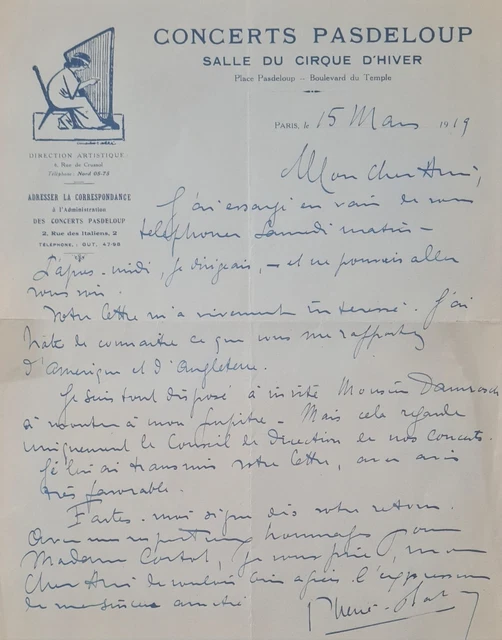 CONCERTS PASDELOUP
SALLE DU CIRQUE D'HIVER
Place Pasdeloup — Boulevard du Temple
PARIS, le 15 Mars 1919
DIRECTION ARTISTIQUE
Téléphone: Nord
ADRESSER LA CORRESPONDANCE
à l'Administration
DES CONCERTS PASDELOUP
2, Rue des Italiens, 2
TÉLÉPHONE, GUT. 47-98
Mon cher Ami,
J'ai essayé en vain de vous
téléphoner Samedi matin —
L'après-midi, je dirigeais, — et ne pouvais aller
vous voir.
Votre lettre m'a vivement intéressé. J'ai
hâte de connaître ce que vous me rapportez
d'Amérique et d'Angleterre.
Je suis tout disposé à inviter Monsieur Damrosch
à monter à mon pupitre — Mais cela regarde
uniquement le Conseil de Direction de nos concerts.
Je lui ai transmis votre lettre, avec avis
très favorable.
Faites-moi signe dès votre retour.
Avec mes respectueux hommages pour
Madame Cortot, je vous prie, mon
cher Ami de vouloir bien agréer l'expression
de ma sincère amitié
Rhené-Baton